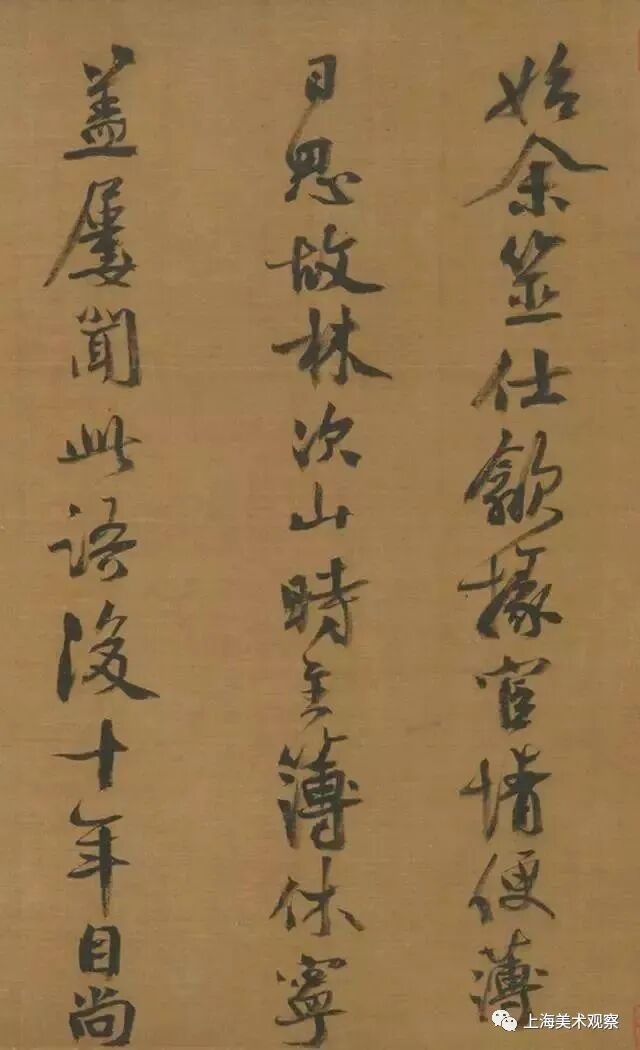 始余筮仕歙掾宦情便薄
日思故林次山時主簿休寧
蓋屢聞此語後十年自尚
上海美术观察